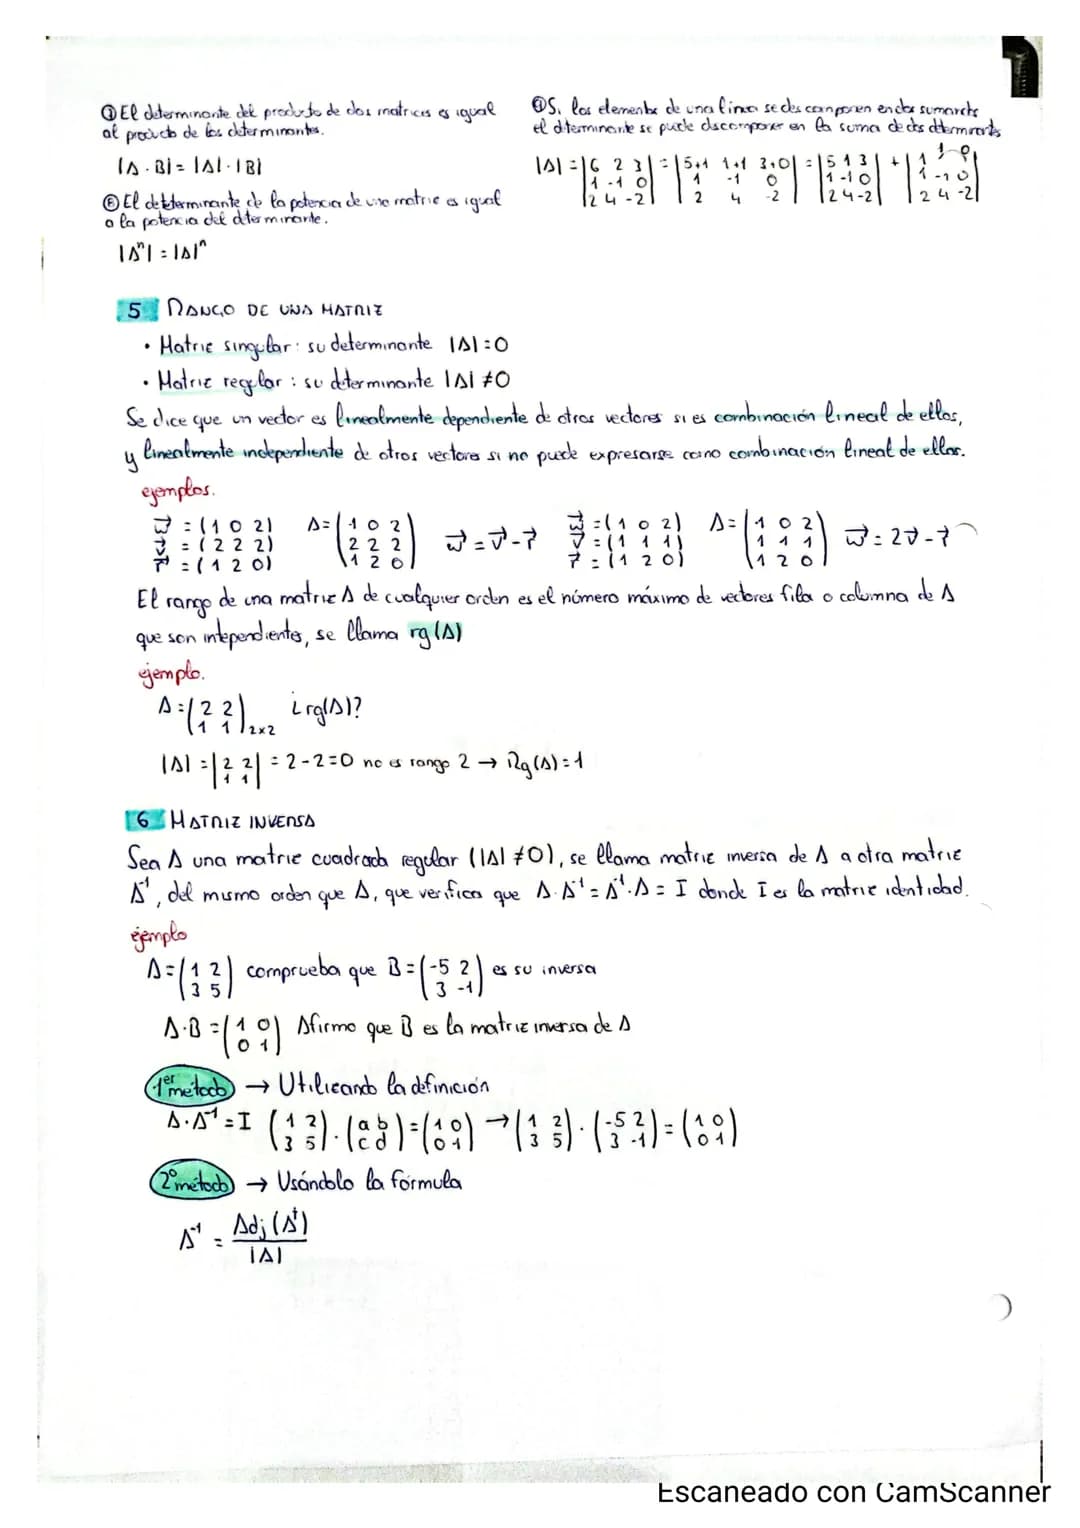 ⑦ El determinante del producto de dos matrices es igual
al producto de los determinantes.
|A · B| = |A| · |B|
⑧ El determinante de la potencia de una matriz es igual
a la potencia del determinante.
|Aⁿ| = |A|ⁿ
⑨ Si los elementos de una línea se descomponen en dos sumandos
el determinante se puede descomponer en la suma de dos determinantes
|A| = |6 2 3| = |5+1 1+1 3+0| = |5 1 3| + |1 1 0|
|1 -1 0| |1 -1 0| |1 -1 0| |1 -1 0|
|2 4 -2| |2 4 -2| |2 4 -2| |2 4 -2|
5 RANGO DE UNA MATRIZ
• Matriz singular: su determinante |A| = 0
• Matriz regular: su determinante |A| ≠ 0
Se dice que un vector es linealmente dependiente de otros vectores si es combinación lineal de ellos,
y linealmente independiente de otros vectores si no puede expresarse como combinación lineal de ellos.
ejemplos.
w⃗ = (1 0 2) A = (1 0 2) w⃗ = (1 0 2) A = (1 0 2)
v⃗ = (2 2 2) (2 2 2) w⃗ = v⃗ - r⃗ v⃗ = (1 1 1) (1 1 1) w⃗ = 2v⃗ - r⃗
r⃗ = (1 2 0) (1 2 0) r⃗ = (1 2 0) (1 2 0)
El rango de una matriz A de cualquier orden es el número máximo de vectores fila o columna de A
que son intependientes, se llama rg(A)
ejemplo.
A = (2 2) ¿rg(A)?
(1 1)2x2
|A| = |2 2| = 2-2=0 no es rango 2 → Rg(A) = 1
|1 1|
6 MATRIZ INVERSA
Sea A una matriz cuadrada regular (|A| ≠ 0), se llama matriz inversa de A a otra matriz
A⁻¹, del mismo orden que A, que verifica que A · A⁻¹ = A⁻¹ · A = I donde I es la matriz identidad.
ejemplo
A = (1 2) comprueba que B = (-5 2) es su inversa
(3 5) (3 -1)
A·B = (1 0) Afirmo que B es la matriz inversa de A
(0 1)
1er método → Utilizando la definición
A · A⁻¹ = I (1 2) · (a b) = (1 0) → (1 2) · (-5 2) = (1 0)
(3 5) (c d) (0 1) (3 5) (3 -1) (0 1)
2º método → Usándolo la fórmula
A⁻¹ = Adj(Aᵗ)
|A|
Escaneado con CamScanner